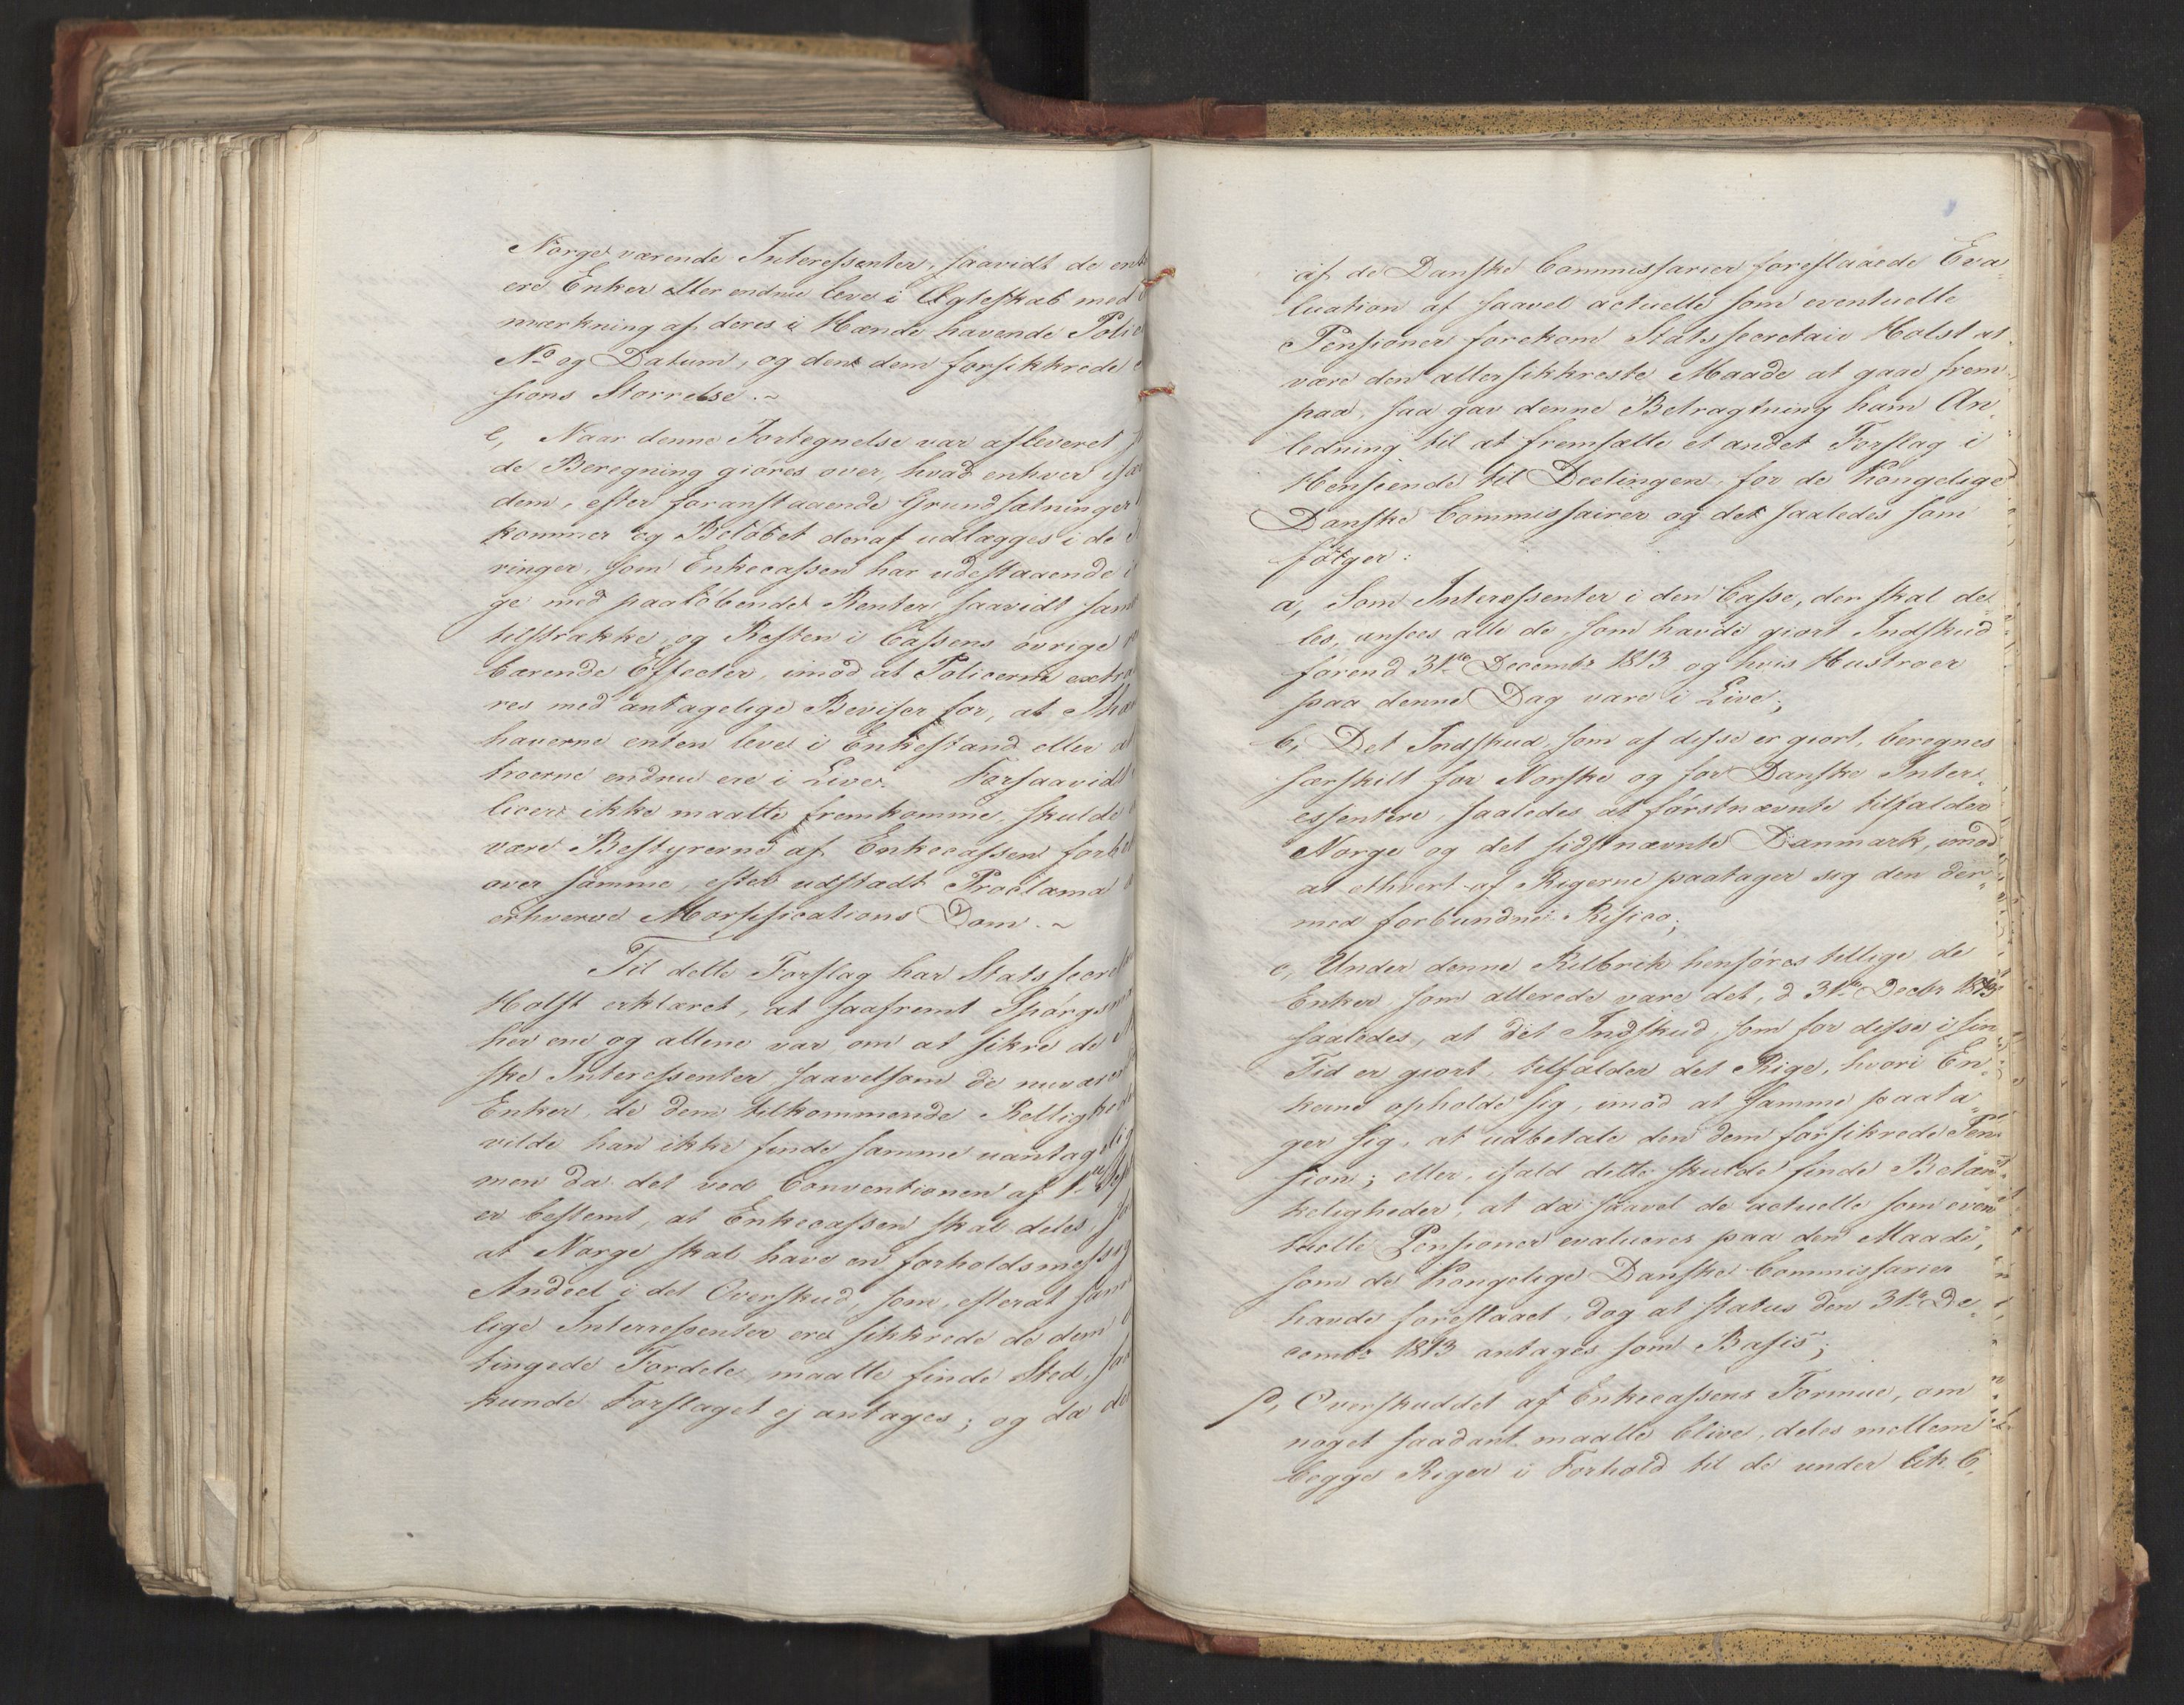 Norge værende Interessenter, saavidt de enten
ere Enker eller endnu leve i Ægteskab med
mærkning af deres i Hænde havende Police
No og Datum, og den dem forsikkrede
sions Størrelse.~
e, Naar denne Fortegnelse var afleveret
de Beregning giøres over, hvad enhver især
dem, efter foranstaaende Grundsætninger
kommer og Beløbet deraf udlægges i de
ringer, som Enkecassen har udestaaende i
ge med paaløbende Renter saavidt samme
tilstrække, og Resten i Cassens øvrige
bærende Effecter, imod at Policerne extra
res med antagelige Beviser for, at Ihænde
haverne enten leve i Enkestand eller at
troerne endnu ere i Live. Forsaavidt
licer ikke maatte fremkomme, skulde
være Bestyrerne af Enkecassen forbe
over samme, efter udstædt Proclama
erhverve Mortifications Dom.~
Til dette Forslag har Statssecretair
Holst erklæret, at saafremt Spørgsmaal
her ene og allene var om at sikre de
ske Interessenter saavelsom de nuværende
Enker, de dem tilkommende Rettigheder
vilde han ikke finde samme uantagelig
men da det ved Conventionen af 1ste Sept
er bestemt, at Enkecassen skal deles,
at Norge skal have en forholdsmessig
Andeel i det Overskud, som, efterat samt
lige Interressenter ere sikkrede de dem
tingede Fordele, maatte finde Sted, saa
kunde Forslaget ej antages; og da de
af de Danske Commissarier foreslaaede Eva-
luation af saavel actuelle som eventuelle
Pensioner forekom Statssecretair Holst at
være den allersikkreste Maade at gaae frem
paa, saa gav denne Betragtning ham An-
ledning til at fremsætte et andet Forslag i
Henseende til Deelingen, for de Kongelige
Danske Commissairer og det saaledes som
følger:
a, Som Interessenter i den Casse, der skal de-
les, ansees alle de, som havde giort Indskud
førend 31te Decembr 1813 og hvis Hustroer
paa denne Dag vare i Live;
b, Det Indskud, som af disse er giort, beregnes
særskilt for Norske og for Danske Inter-
essentere, saaledes at førstnævnte tilfalder
Norge og det sidstnævnte Danmark, imod
at ethvert af Rigerne paatager sig den der-
med forbundne Risico;
c, Under denne Rubrik henføres tillige de
Enker, som allerede vare det, d 31te Decbr 1813
saaledes, at det Indskud, som for disse i sin
Tid er giort, tilfalder det Rige, hvori En-
kerne opholde sig, imod at samme paata-
ger sig, at udbetale den dem forsikrede Pen-
sion; eller, ifald dette skulde finde Betænk-
keligheder, at da saavel de actuelle som even-
tuelle Pensioner evalueres paa den Maade,
som de Kongelige Danske Commissarier
havde foreslaaet, dog at status den 31te De-
cembr 1813 antages som Basis;
d, Overskuddet af Enkecassens Formue, om
noget saadant maatte blive, deles mellem
begge Riger i Forhold til de under Litr. b,